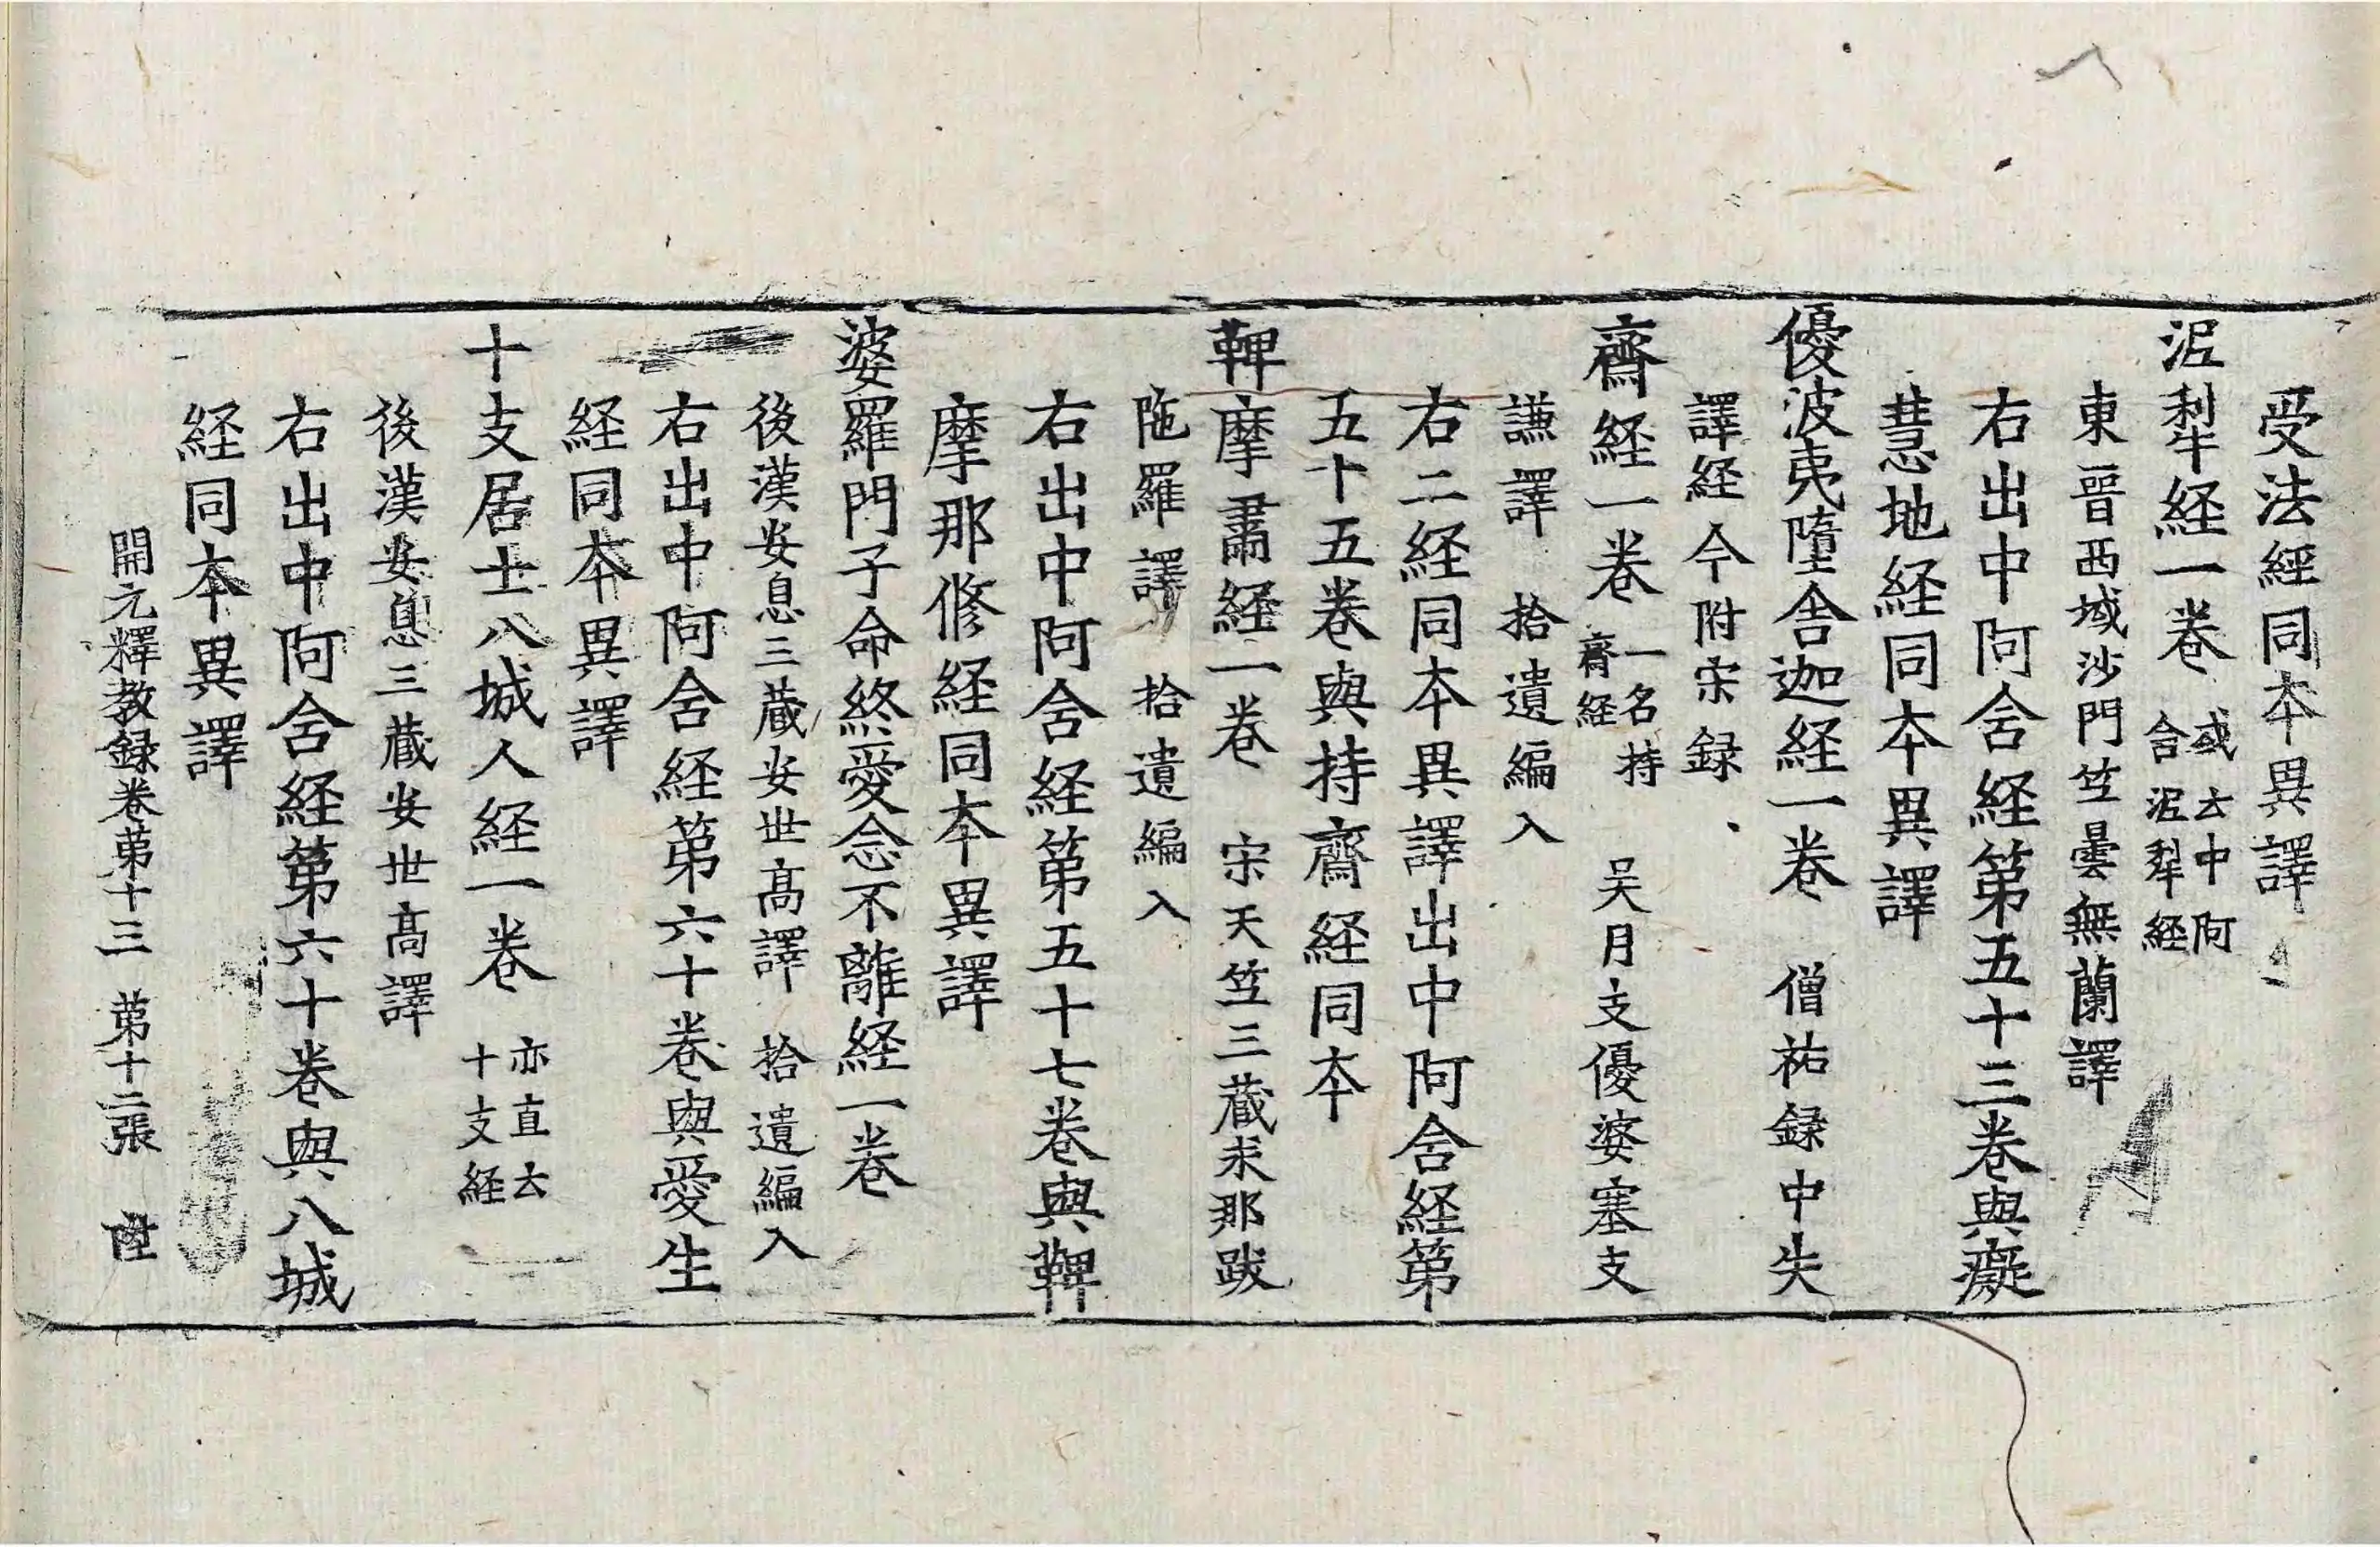 受法經同本異譯
泥犁経一卷 或云中阿含泥犁経
東晉西域沙門竺曇無蘭譯
右出中阿含経第五十三卷與癡
慧地経同本異譯
優波夷墮舍迦経一卷 僧祐録中失
譯経今附宋録
齋経一卷 一名持齋経 吴月支優婆塞支
謙譯 拾遺編入
右二経同本異譯出中阿含経第
五十五卷與持齋経同本
鞞摩肅経一卷 宋天竺三藏求那跋
陁羅譯 拾遺編入
右出中阿含経第五十七卷與鞞
摩那修経同本異譯
婆羅門子命終愛念不離経一卷
後漢安息三藏安世高譯 拾遺編入
右出中阿含経第六十卷與愛生
経同本異譯
十支居士八城人経一卷 亦直云十支経
後漢安息三藏安世高譯
右出中阿含経第六十卷與八城
経同本異譯
開元釋教録卷第十三 第十二張